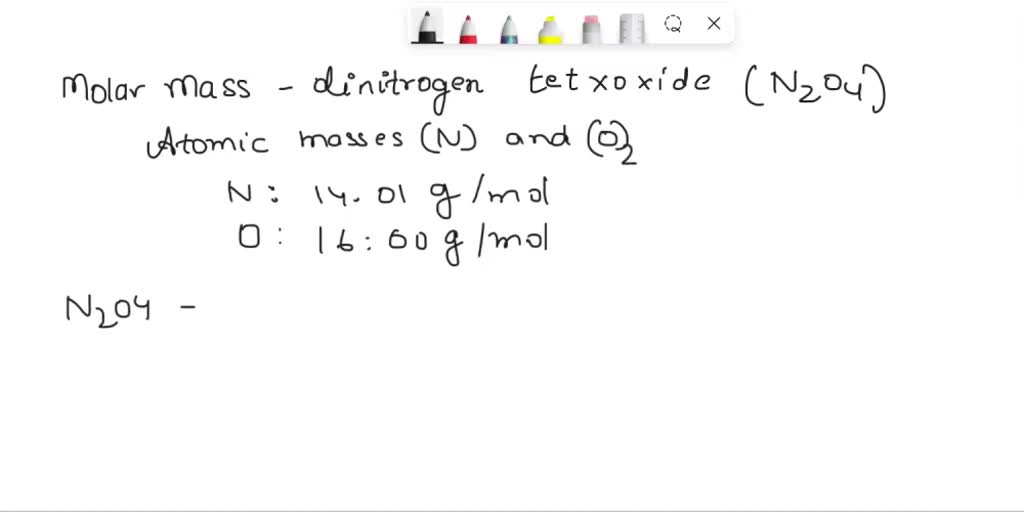 Molar mass - dinitrogen tetxoxide (N2O4)
Atomic masses (N) and (O)2
N: 14.01 g/mol
O: 16:00 g/mol
N2O4 -